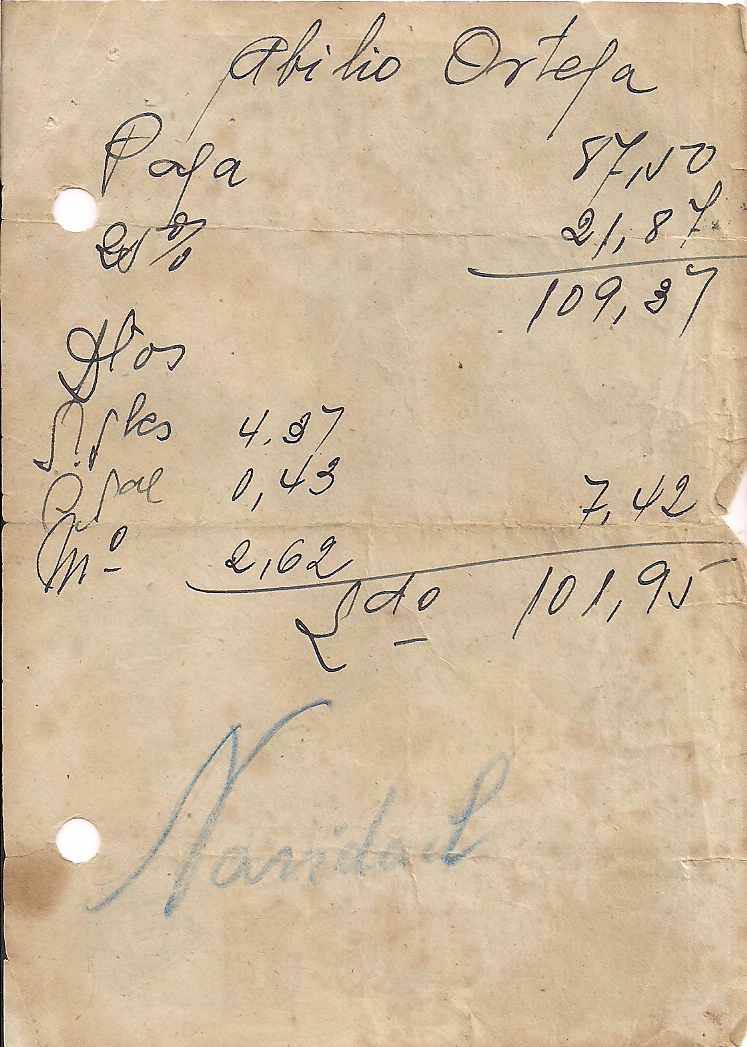 Abilio Ortega
Paga 87,50
25 % 21,87
109,37
Dtos
S. Sles 4,37
C. Sal 0,43 7,42
Mº 2,62
Ldo 101,95
Navidad